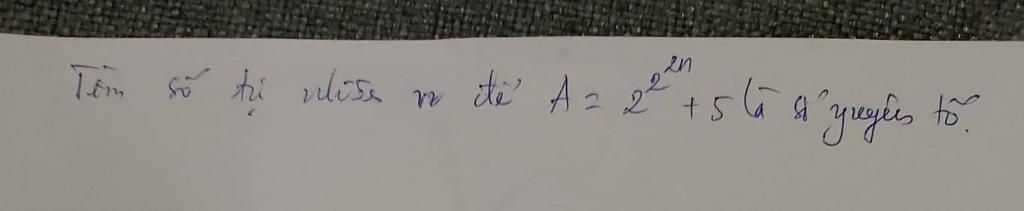 Tìm số tự nhiên n để A = 2^{2^{2n}} + 5 là số nguyên tố.